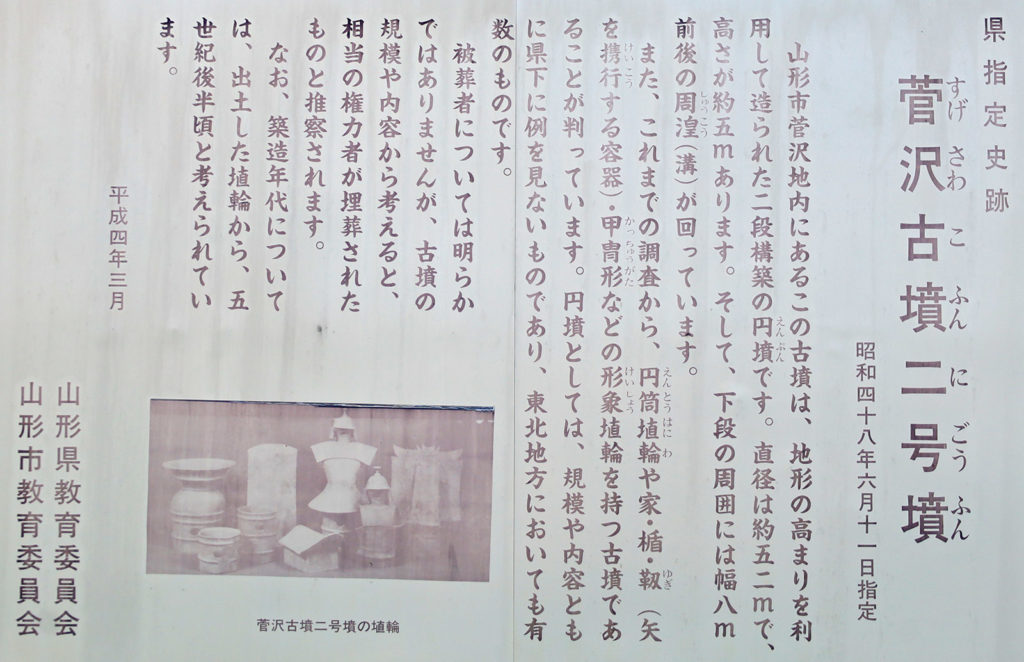 県指定史跡
菅沢古墳二号墳
すげさわこふんにごうふん
昭和四十八年六月十一日指定
山形市菅沢地内にあるこの古墳は、地形の高まりを利
用して造られた二段構築の円墳です。直径は約五二mで、
えんぷん
高さが約五mあります。そして、下段の周囲には幅八m
前後の周湟(溝)が回っています。
しゅうこう
また、これまでの調査から、円筒埴輪や家・楯・靱(矢
えんとうはにわ
ゆぎ
を携行する容器)・甲冑形などの形象埴輪を持つ古墳であ
けいこう
かっちゅうがた
けいしょう
ることが判っています。円墳としては、規模や内容とも
に県下に例を見ないものであり、東北地方においても有
数のものです。
被葬者については明らか
ではありませんが、古墳の
規模や内容から考えると、
相当の権力者が埋葬された
ものと推察されます。
なお、築造年代について
は、出土した埴輪から、五
世紀後半頃と考えられてい
ます。
平成四年三月
山形県教育委員会
山形市教育委員会
菅沢古墳二号墳の埴輪